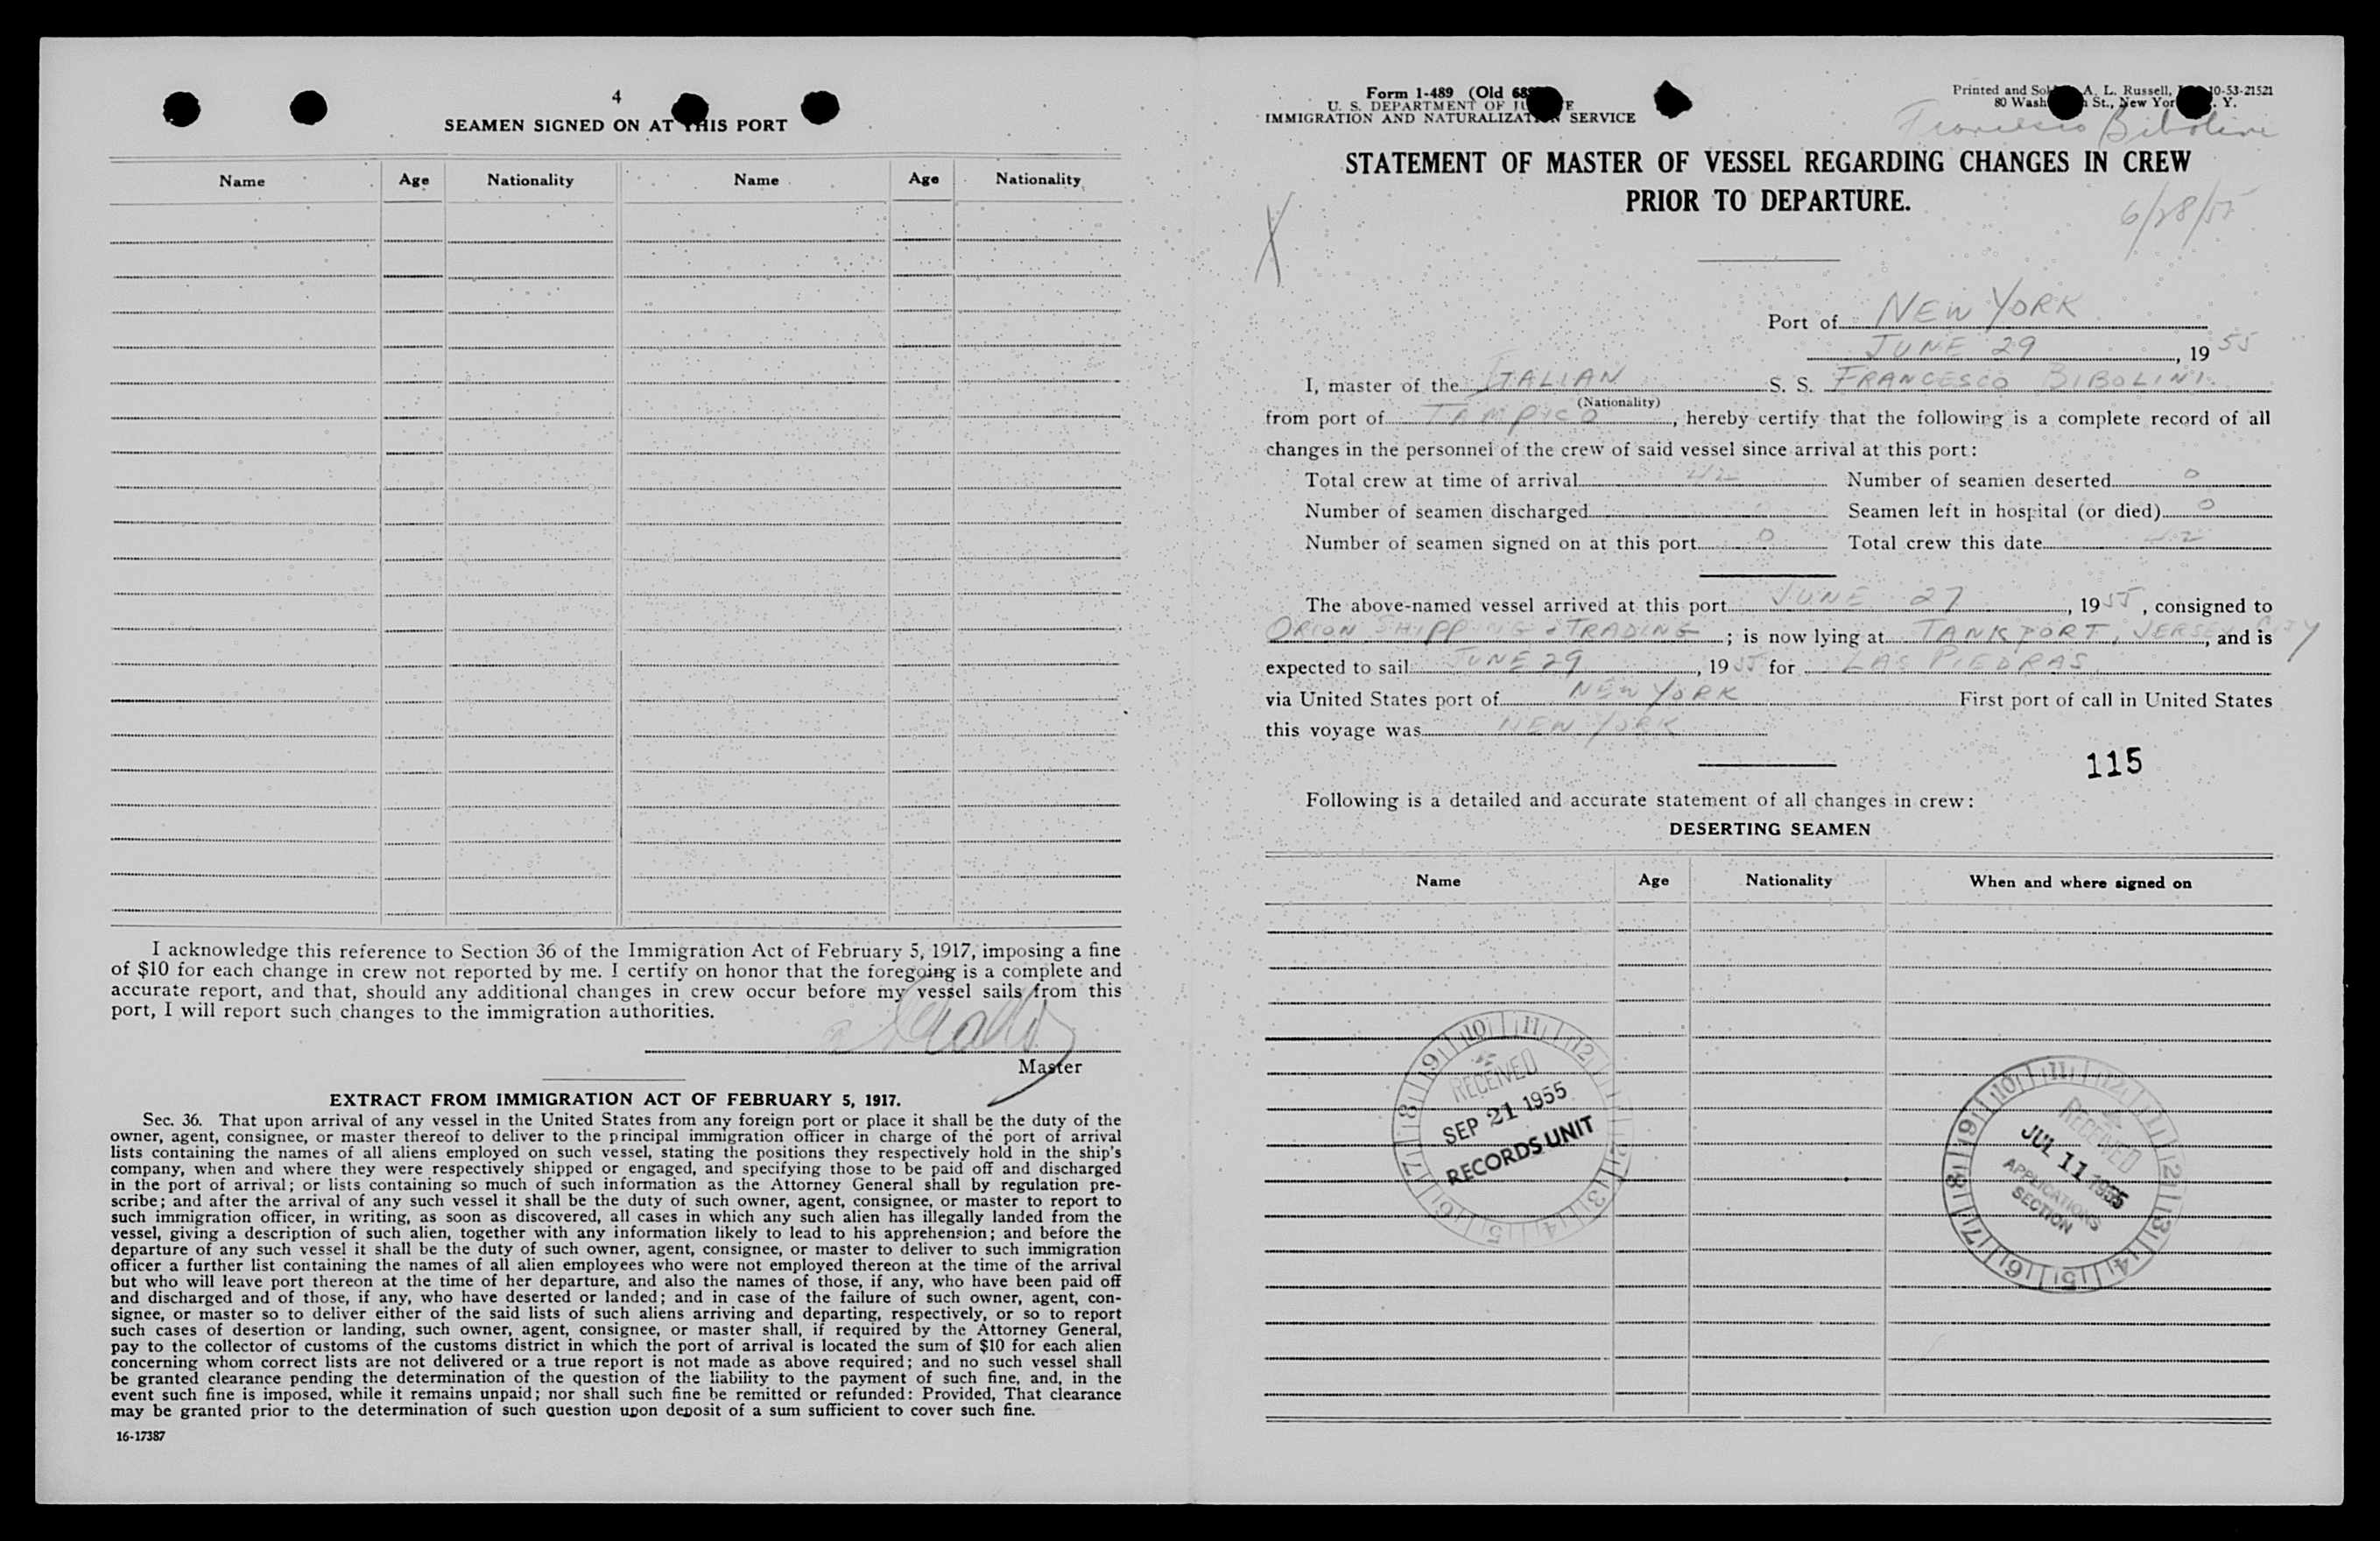 4
SEAMEN SIGNED ON AT THIS PORT
Name Age Nationality Name Age Nationality
I acknowledge this reference to Section 36 of the Immigration Act of February 5, 1917, imposing a fine
of $10 for each change in crew not reported by me. I certify on honor that the foregoing is a complete and
accurate report, and that, should any additional changes in crew occur before my vessel sails from this
port, I will report such changes to the immigration authorities.
Master
EXTRACT FROM IMMIGRATION ACT OF FEBRUARY 5, 1917.
Sec. 36. That upon arrival of any vessel in the United States from any foreign port or place it shall be the duty of the
owner, agent, consignee, or master thereof to deliver to the principal immigration officer in charge of the port of arrival
lists containing the names of all aliens employed on such vessel, stating the positions they respectively hold in the ship's
company, when and where they were respectively shipped or engaged, and specifying those to be paid off and discharged
in the port of arrival; or lists containing so much of such information as the Attorney General shall by regulation pre-
scribe; and after the arrival of any such vessel it shall be the duty of such owner, agent, consignee, or master to report to
such immigration officer, in writing, as soon as discovered, all cases in which any such alien has illegally landed from the
vessel, giving a description of such alien, together with any information likely to lead to his apprehension; and before the
departure of any such vessel it shall be the duty of such owner, agent, consignee, or master to deliver to such immigration
officer a further list containing the names of all alien employees who were not employed thereon at the time of the arrival
but who will leave port thereon at the time of her departure, and also the names of those, if any, who have been paid off
and discharged and of those, if any, who have deserted or landed; and in case of the failure of such owner, agent, con-
signee, or master so to deliver either of the said lists of such aliens arriving and departing, respectively, or so to report
such cases of desertion or landing, such owner, agent, consignee, or master shall, if required by the Attorney General,
pay to the collector of customs of the customs district in which the port of arrival is located the sum of $10 for each alien
concerning whom correct lists are not delivered or a true report is not made as above required; and no such vessel shall
be granted clearance pending the determination of the question of the liability to the payment of such fine, and, in the
event such fine is imposed, while it remains unpaid; nor shall such fine be remitted or refunded: Provided, That clearance
may be granted prior to the determination of such question upon deposit of a sum sufficient to cover such fine.
16-17387
Form 1-489 (Old
U. S. DEPARTMENT OF
IMMIGRATION AND NATURALIZATION SERVICE
Printed and A. L. Russell, 10-53-21521
80 Wash St., New York N. Y.
Francesco Bibolini
STATEMENT OF MASTER OF VESSEL REGARDING CHANGES IN CREW
PRIOR TO DEPARTURE.
6/28/55
X
Port of NEW YORK
JUNE 29, 1955
I, master of the ITALIAN S. S. FRANCESCO BIBOLINI
(Nationality)
from port of TAMPICO, hereby certify that the following is a complete record of all
changes in the personnel of the crew of said vessel since arrival at this port:
Total crew at time of arrival 42 Number of seamen deserted 0
Number of seamen discharged Seamen left in hospital (or died) 0
Number of seamen signed on at this port 0 Total crew this date 42
The above-named vessel arrived at this port JUNE 27, 1955, consigned to
ORION SHIPPING & TRADING; is now lying at TANKPORT, JERSEY CITY, and is
expected to sail JUNE 29, 1955 for LAS PIEDRAS
via United States port of NEW YORK First port of call in United States
this voyage was NEW YORK
115
Following is a detailed and accurate statement of all changes in crew:
DESERTING SEAMEN
Name Age Nationality When and where signed on
10 11 12 1 2 3 4 5 6 7 8 9
RECEIVED
SEP 21 1955
RECORDS UNIT
10 11 12 1 2 3 4 5 6 7 8 9
RECEIVED
JUL 11 1955
APPLICATIONS
SECTION